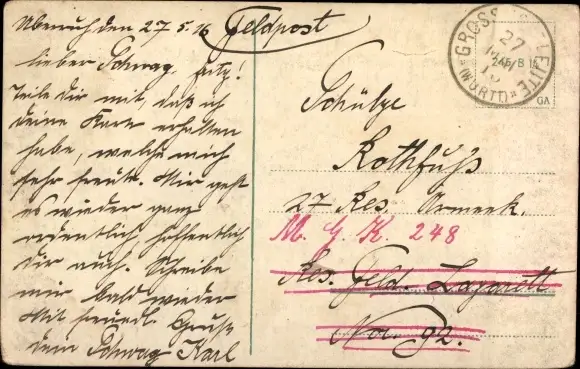 den 27.5.16 Feldpost
lieber Schwag. Fritz!
Teile dir mit, daß ich
deine Karte erhalten
habe, welche mich
sehr freute. Mir geht
es wieder ganz
ordentlich, hoffentlich
dir auch. Schreibe
mir bald wieder
Mit freundl. Gruß
dein Schwag Karl
GROSS
27
MAI
(WÜRTT)
GA
Schütze
Rothfuß
27 Res. Armeek.
M. G. K. 248
Res. Feld. Lazarett
No. 92.